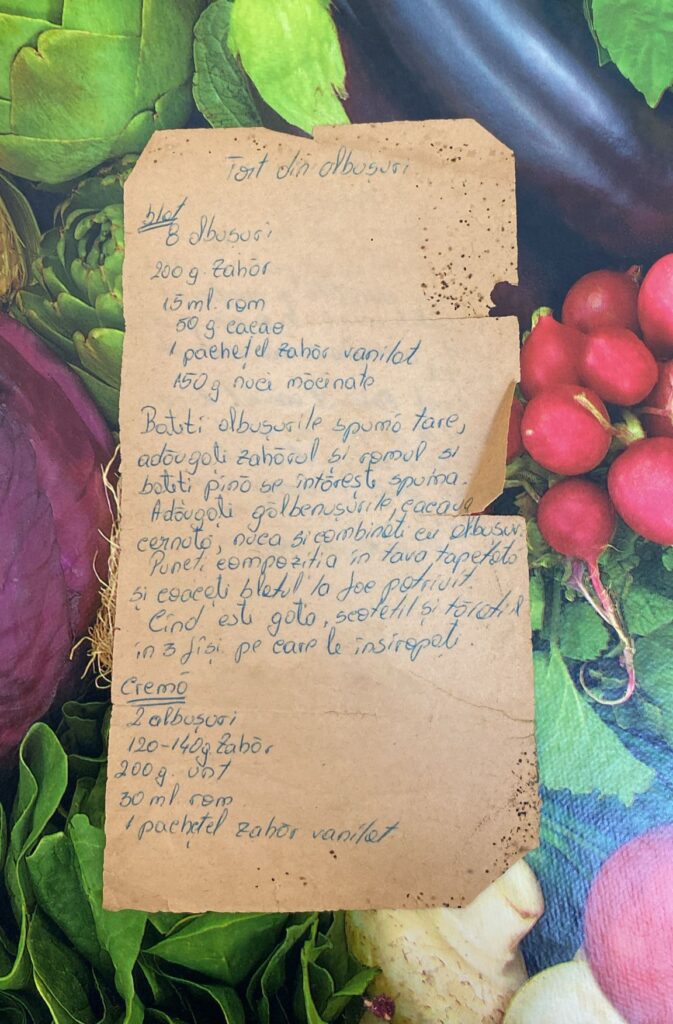 Tort din albușuri
blat
8 albușuri
200 g. zahăr
15 ml. rom
50 g cacao
1 pachețel zahăr vanilat
150 g nuci măcinate
Bateti albușurile spumă tare,
adăugați zahărul și romul si
bateti pînă se întărești spuma.
Adăugați gălbenușurile, cacaua
cernută, nuca si combinati cu albușuri
Puneti compozitia în tava tapetată
și coaceți blatul la foc potrivit.
Cînd esti gata, scoatetil și tăiatil
în 3 fîșii pe care le însiropați.
Cremă
2 albușuri
120-140g zahăr
200 g. unt
30 ml. rom
1 pachețel zahăr vanilat